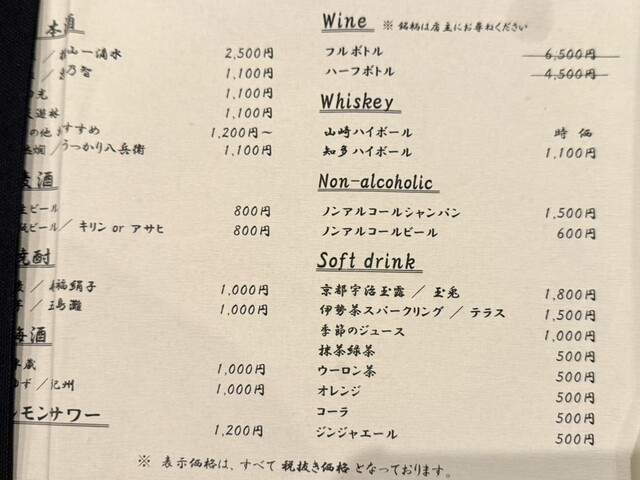 本酒
山一滴水 2,500円
乃智 1,100円
光 1,100円
遊林 1,100円
の他 おすすめ 1,200円～
燗／うっかり八兵衛 1,100円
酒
ビール 800円
ビール／キリン or アサヒ 800円
焼酎
／福絹子 1,000円
／五島灘 1,000円
梅酒
蔵 1,000円
ゆず／紀州 1,000円
レモンサワー
1,200円
Wine ※ 銘柄は店主にお尋ねください
フルボトル 6,500円
ハーフボトル 4,500円
Whiskey
山崎ハイボール 時価
知多ハイボール 1,100円
Non-alcoholic
ノンアルコールシャンパン 1,500円
ノンアルコールビール 600円
Soft drink
京都宇治玉露／玉兎 1,800円
伊勢茶スパークリング／テラス 1,500円
季節のジュース 1,000円
抹茶緑茶 500円
ウーロン茶 500円
オレンジ 500円
コーラ 500円
ジンジャエール 500円
※ 表示価格は、すべて税抜き価格となっております。